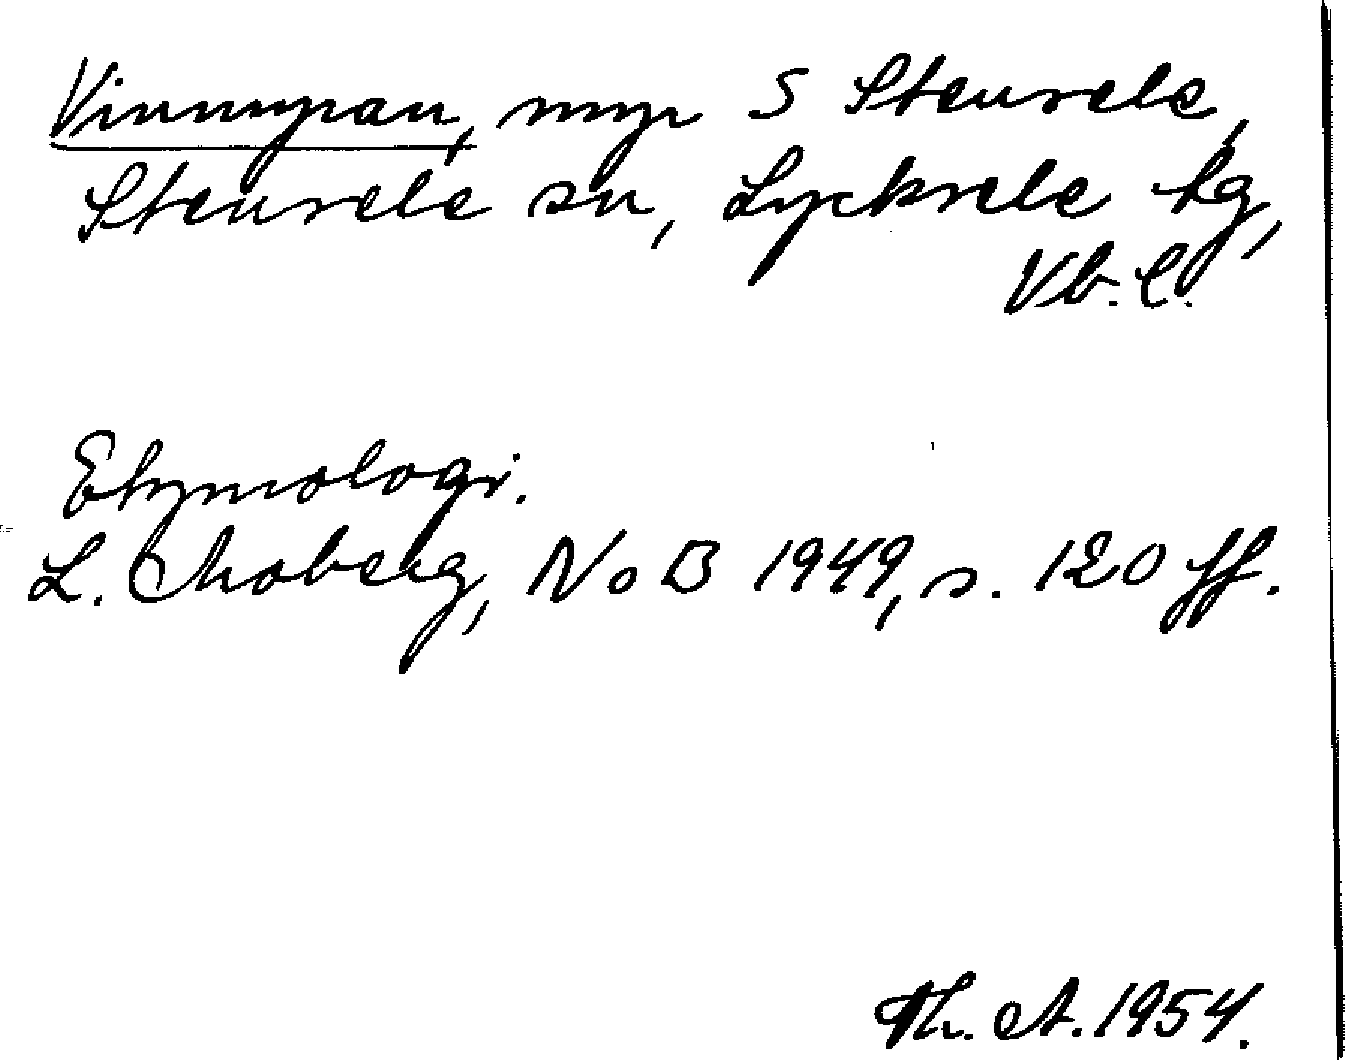 Vinnmyran, myr S Stensele,
Stensele sn, Lycksele lg,
Vb. l.
Etymologi.
L. Moberg, NoB 1949, s. 120 ff.
Th. A. 1954.